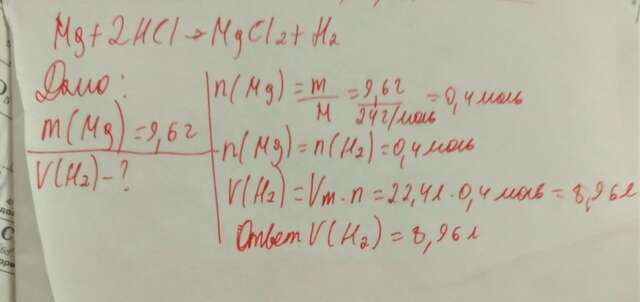 Mg + 2HCl → MgCl2 + H2
Дано:
m(Mg) = 9,6г
V(H2) - ?
n(Mg) = m/M = 9,6г/24г/моль = 0,4 моль
n(Mg) = n(H2) = 0,4 моль
V(H2) = Vm · n = 22,4л · 0,4 моль = 8,96л
Ответ V(H2) = 8,96л